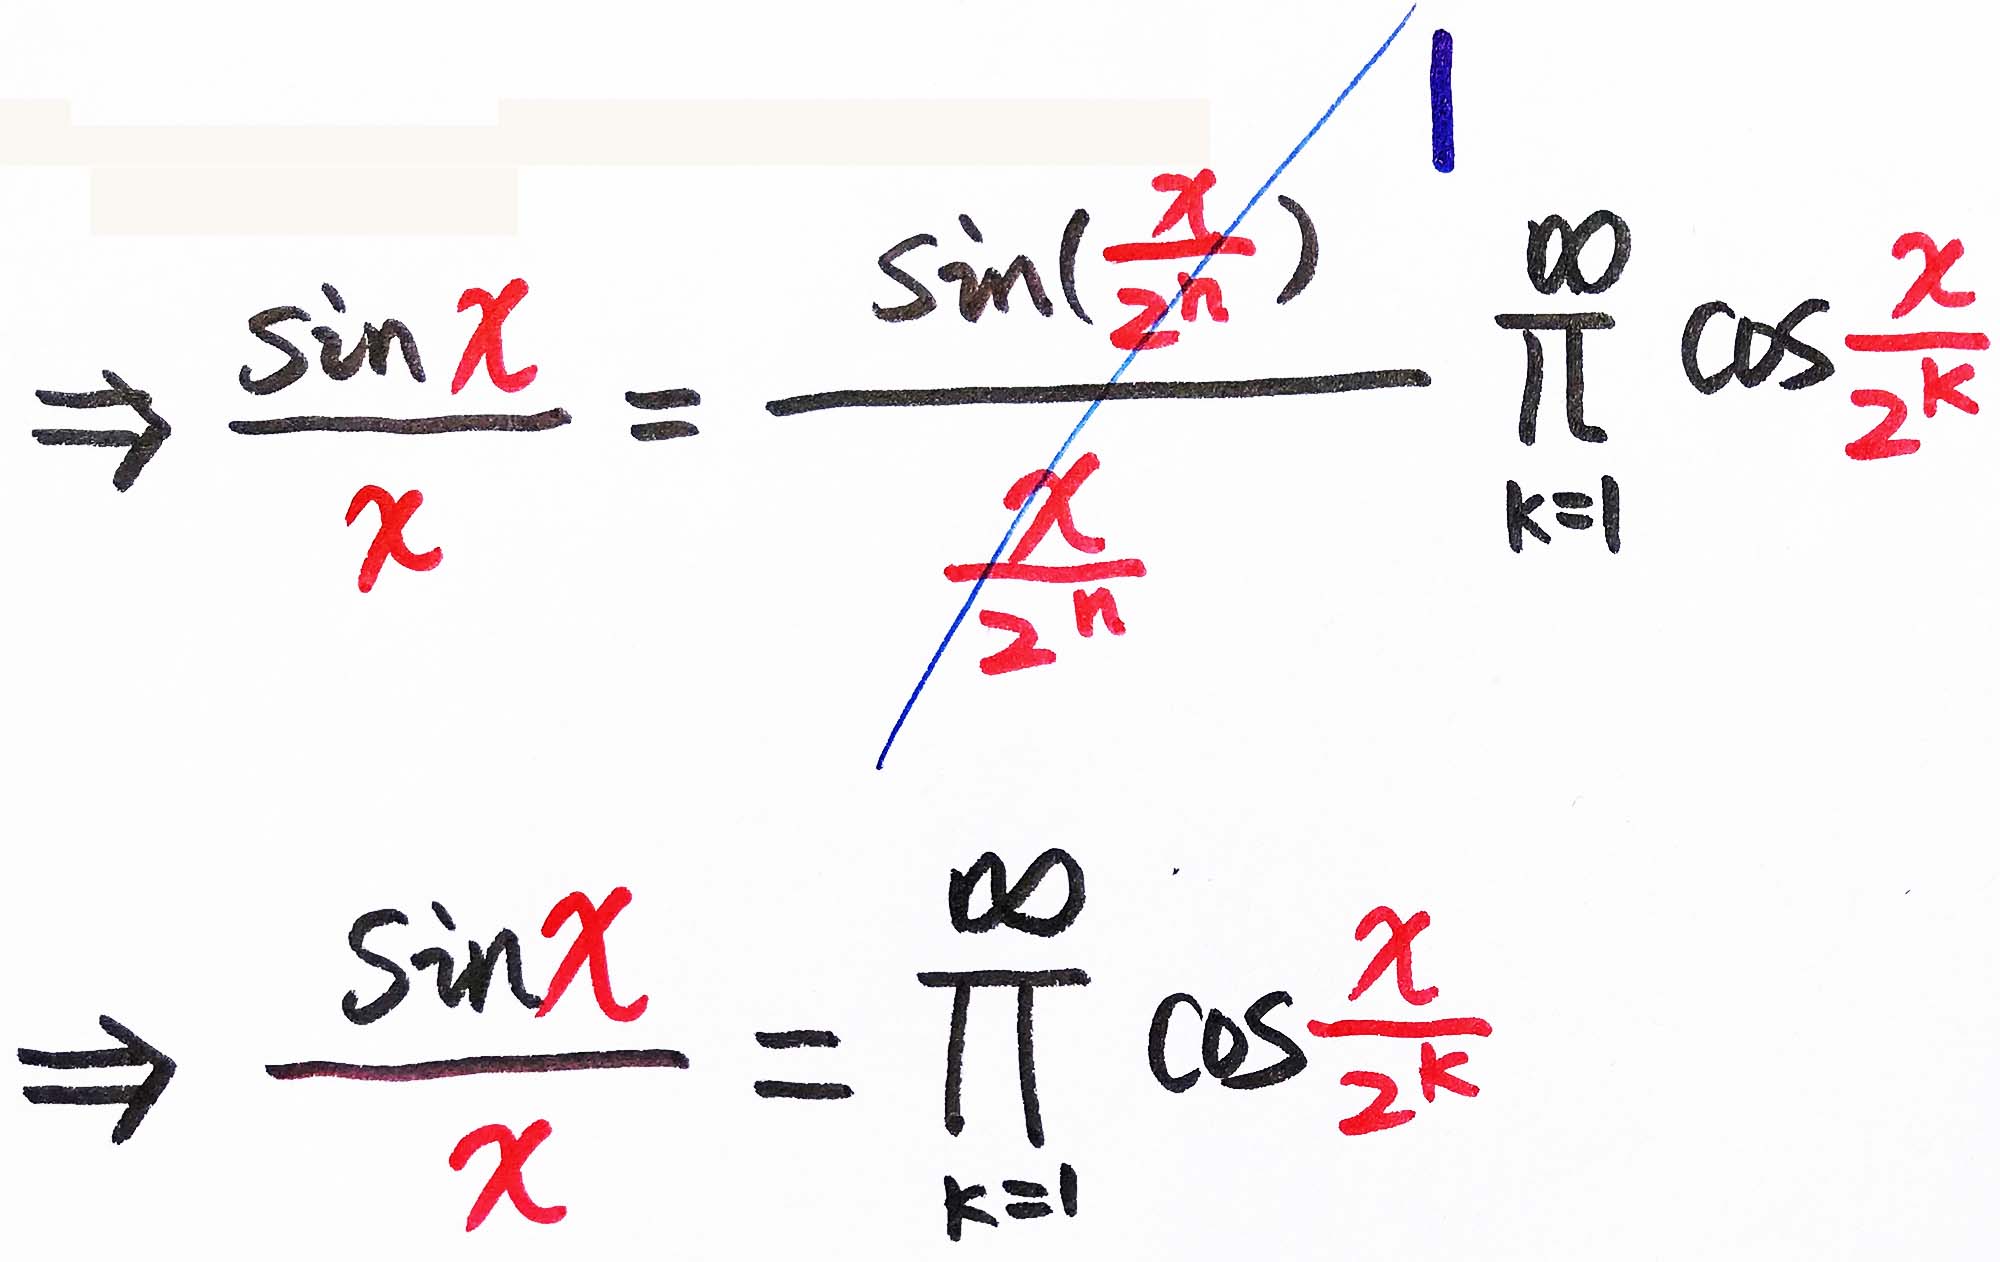 ⇒ \frac{\sin x}{x} = \frac{\sin(\frac{x}{2^n})}{\frac{x}{2^n}} 1 \prod_{k=1}^{\infty} \cos \frac{x}{2^k}
⇒ \frac{\sin x}{x} = \prod_{k=1}^{\infty} \cos \frac{x}{2^k}